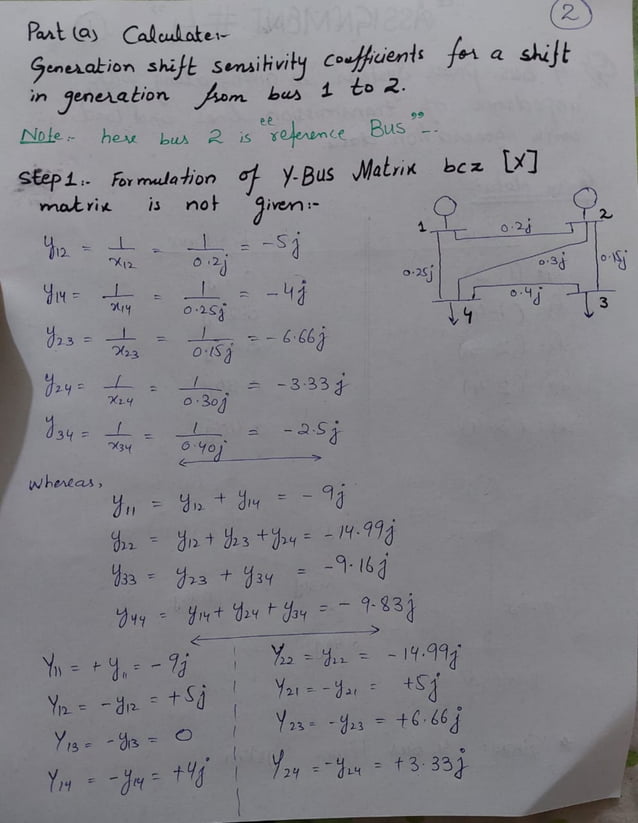 2
Part (a) Calculate:-
Generation shift sensitivity coefficients for a shift
in generation from bus 1 to 2.
Note:- here bus 2 is "reference Bus"-.
Step 1:- Formulation of Y-Bus Matrix bcz [X]
matrix is not given:-
y12 = 1/x12 = 1/0.2j = -5j
y14 = 1/x14 = 1/0.25j = -4j
y23 = 1/x23 = 1/0.15j = -6.66j
y24 = 1/x24 = 1/0.30j = -3.33j
y34 = 1/x34 = 1/0.40j = -2.5j
1
2
0.2j
0.25j
0.3j
0.15j
0.4j
4
3
whereas,
y11 = y12 + y14 = -9j
y22 = y12 + y23 + y24 = -14.99j
y33 = y23 + y34 = -9.16j
y44 = y14 + y24 + y34 = -9.83j
Y11 = +y11 = -9j
Y12 = -y12 = +5j
Y13 = -y13 = 0
Y14 = -y14 = +4j
Y22 = y22 = -14.99j
Y21 = -y21 = +5j
Y23 = -y23 = +6.66j
Y24 = -y24 = +3.33j